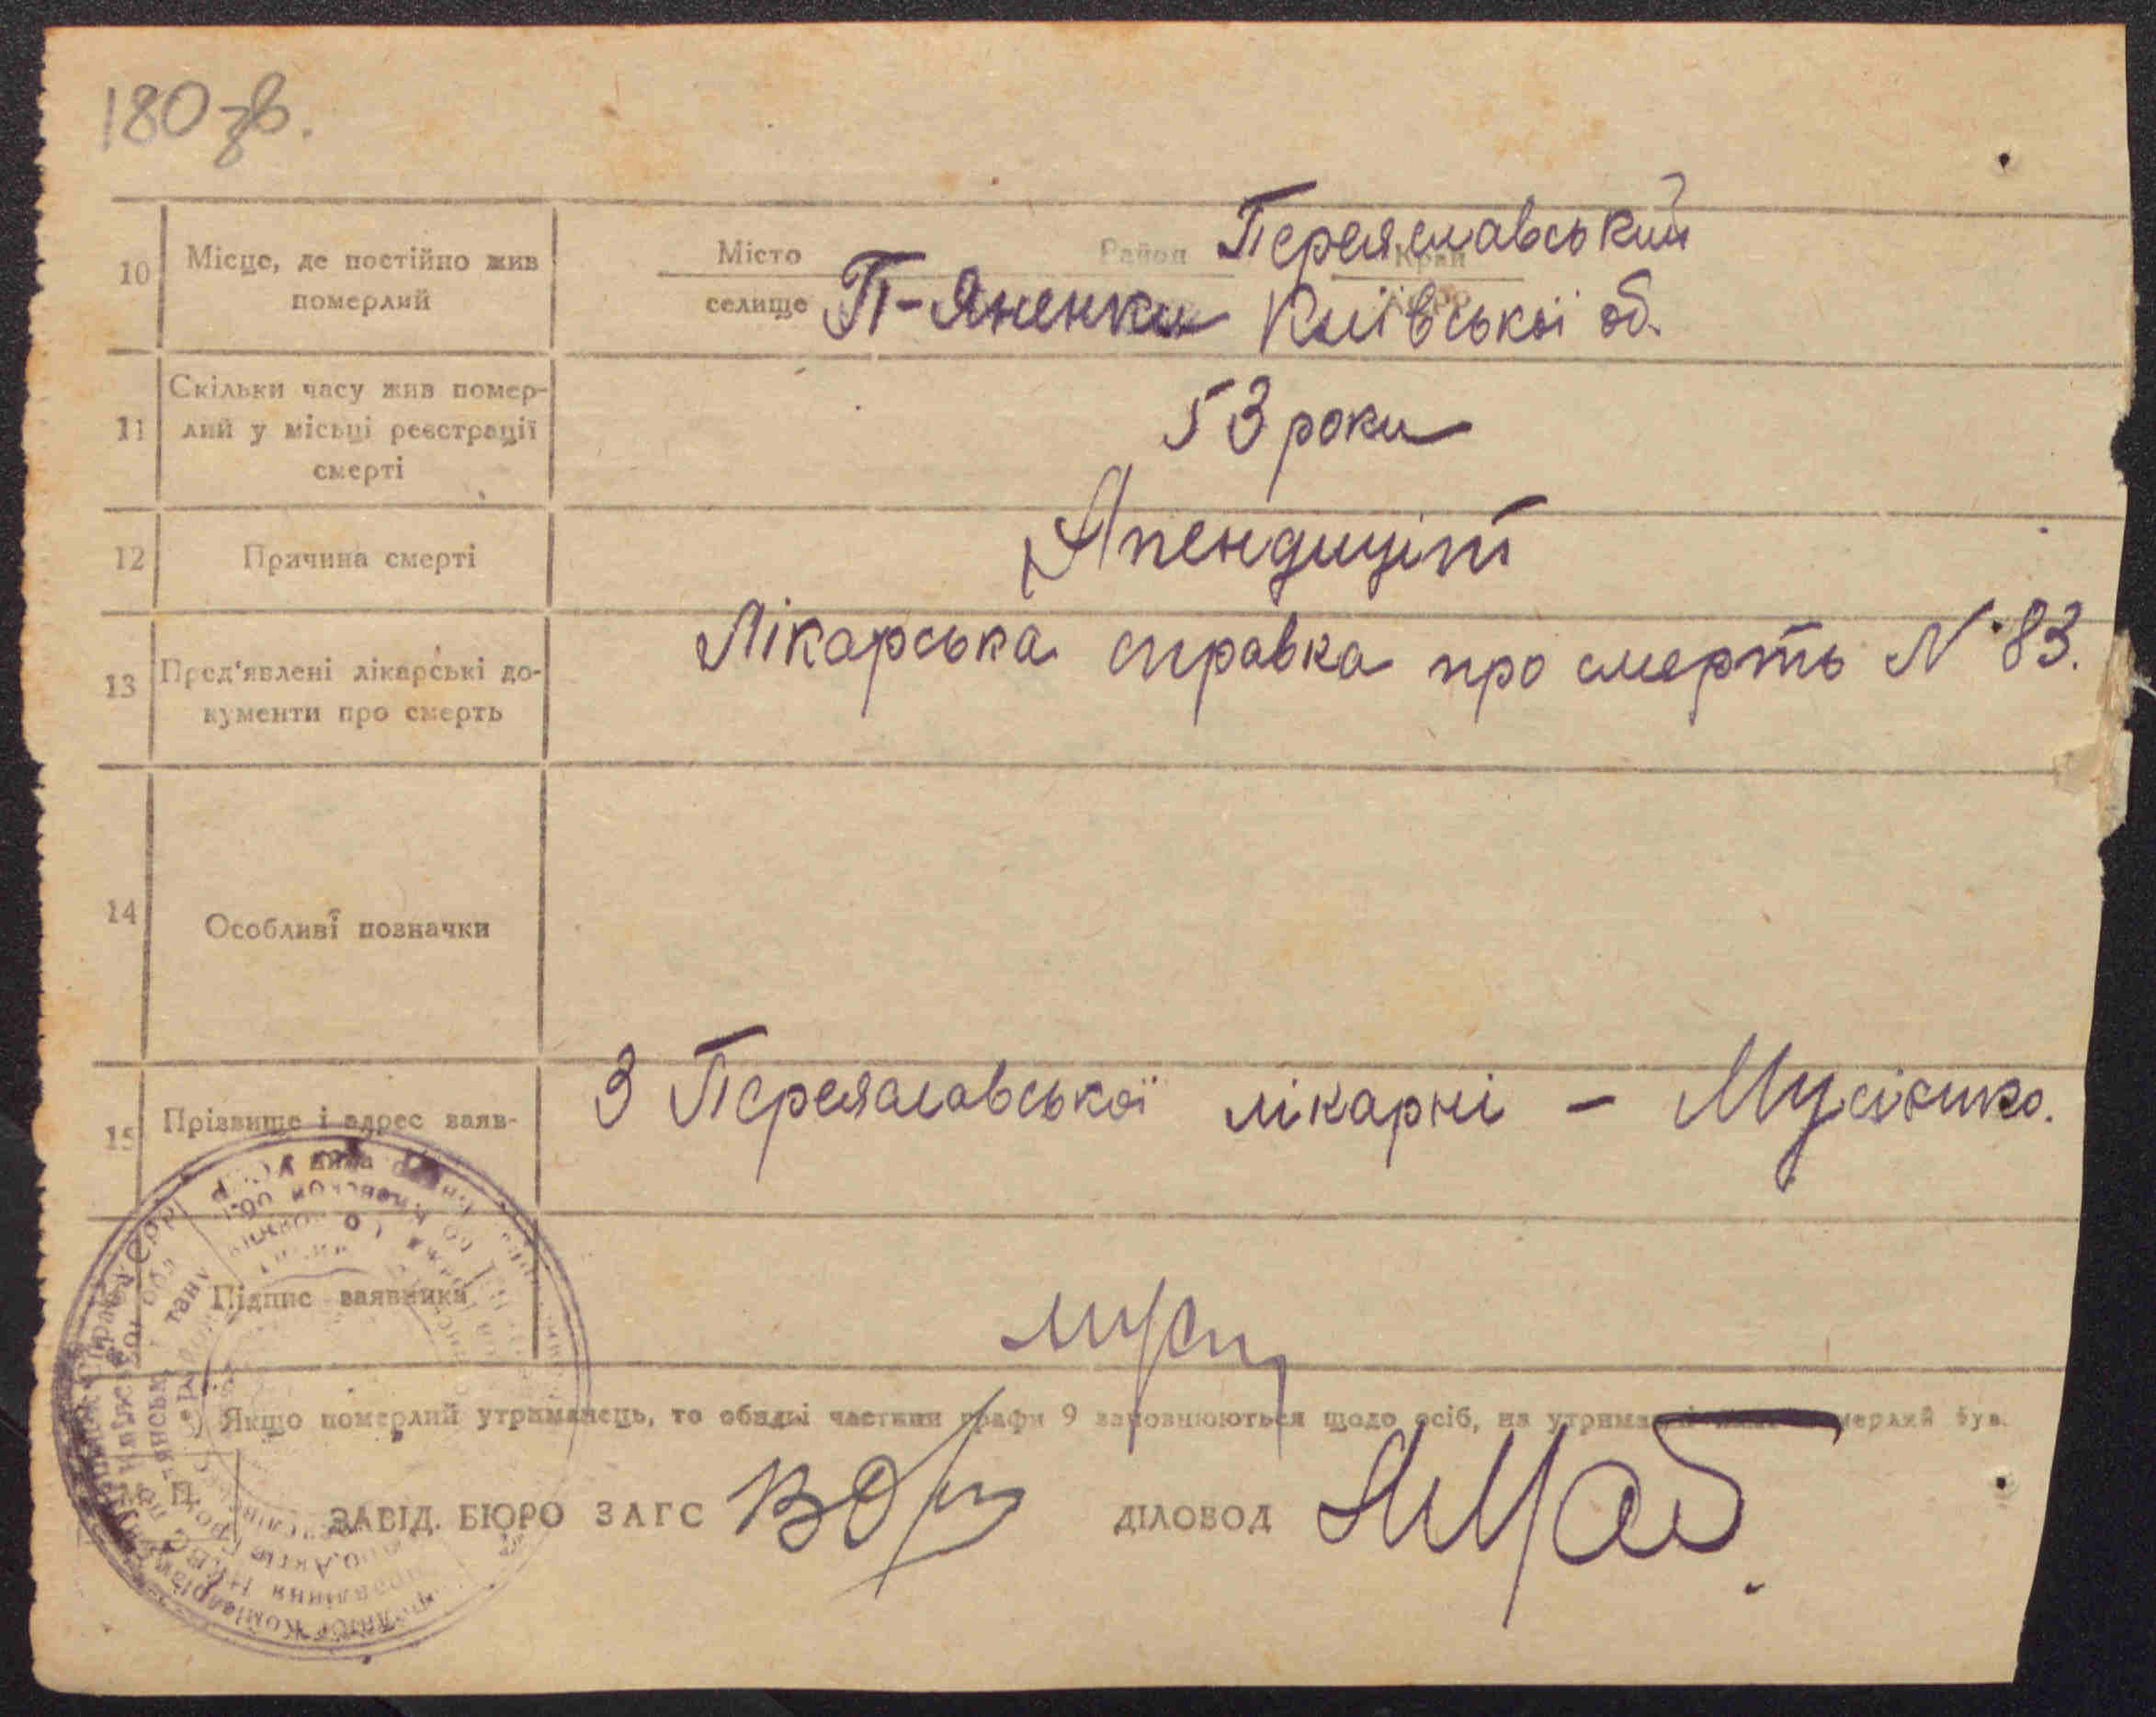 180 зв.
10 Місце, де постійно жив померлий
Місто
селище П-Яненки
Район Переяславський
Край
Київської об.
11 Скільки часу жив помер-
лий у місьці реєстрації
смерті
53 роки
12 Причина смерті
Апендиціт
13 Пред'явлені лікарські до-
кументи про смерть
Лікарська справка про смерть N 83.
14 Особливі позначки
15 Прізвище і адрес заяв-
ника
З Переяславської лікарні —
Підпис заявника
Якщо померлий утриманець, то обидві частини графи 9 заповнюються щодо осіб, на померлий був.
ЗАВІД. БЮРО ЗАГС
ДІЛОВОД